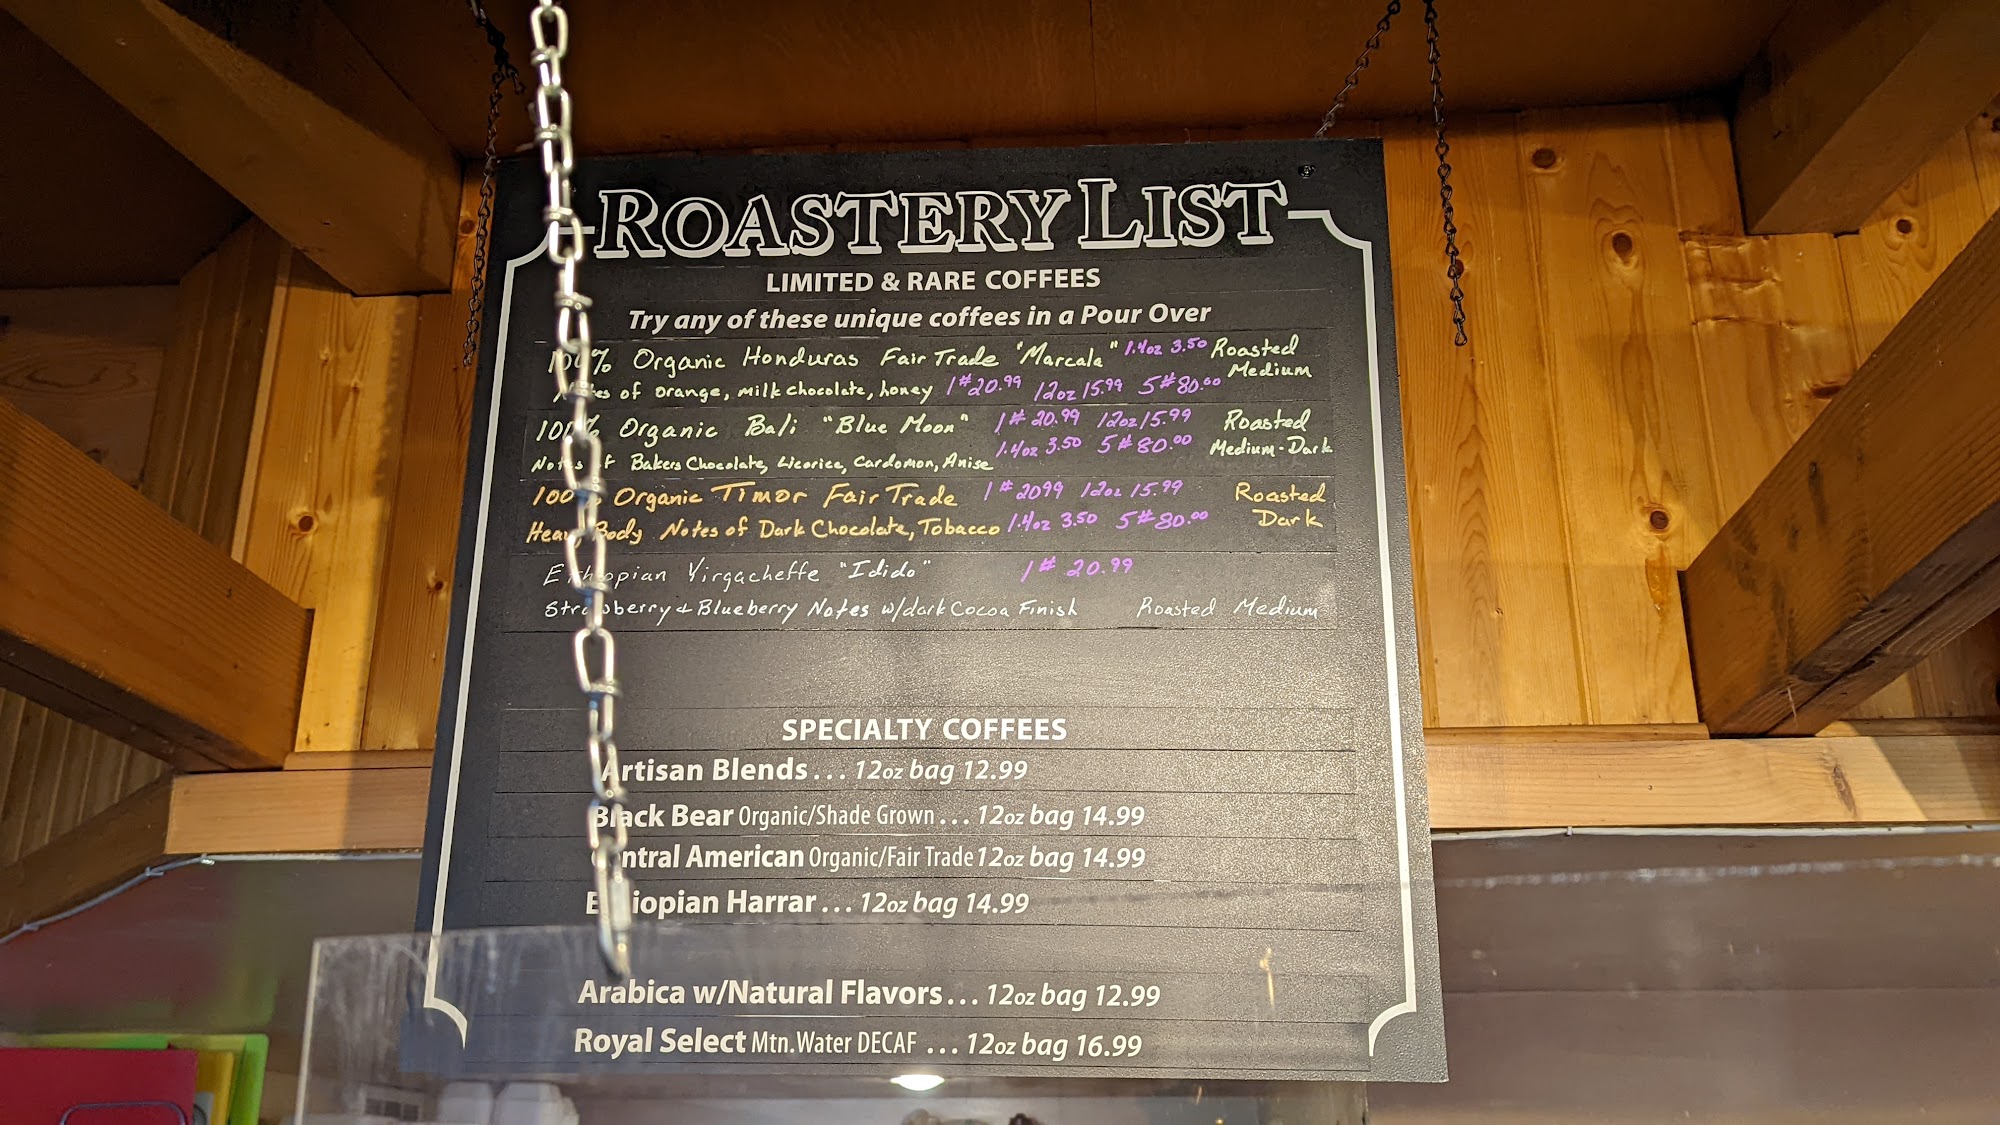 ROASTERY LIST
LIMITED & RARE COFFEES
Try any of these unique coffees in a Pour Over
100% Organic Honduras Fair Trade "Marcala" 1.4oz 3.50 Roasted Medium
Notes of orange, milk chocolate, honey 1# 20.99 12oz 15.99 5# 80.00
100% Organic Bali "Blue Moon" 1# 20.99 12oz 15.99 Roasted
Notes of Bakers Chocolate, Licorice, Cardomon, Anise 1.4oz 3.50 5# 80.00 Medium-Dark
100% Organic Timor Fair Trade 1# 2099 12oz 15.99 Roasted
Heavy Body Notes of Dark Chocolate, Tobacco 1.4oz 3.50 5# 80.00 Dark
Ethiopian Yirgacheffe "Idido" 1# 20.99
Strawberry & Blueberry Notes w/dark Cocoa Finish Roasted Medium
SPECIALTY COFFEES
Artisan Blends... 12oz bag 12.99
Black Bear Organic/Shade Grown... 12oz bag 14.99
Central American Organic/Fair Trade 12oz bag 14.99
Ethiopian Harrar... 12oz bag 14.99
Arabica w/Natural Flavors... 12oz bag 12.99
Royal Select Mtn.Water DECAF ... 12oz bag 16.99